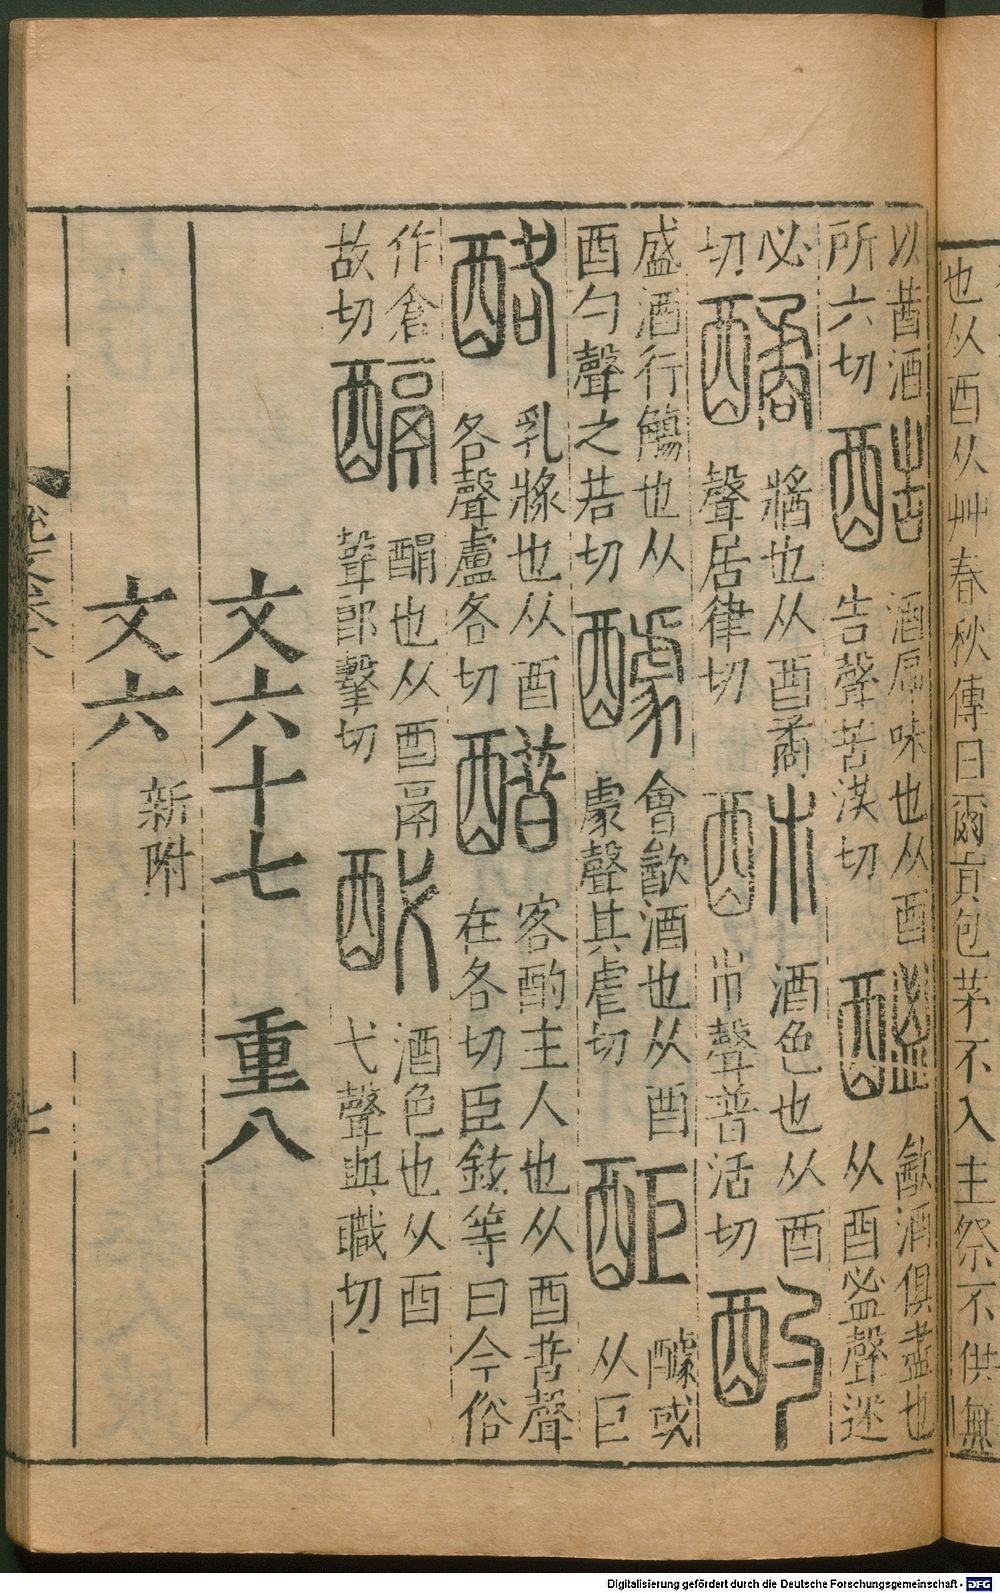 也从酉从艸春秋傳曰爾貢包茅不入主祭不供無
以茜酒所六切 酷 酒厚味也从酉告聲苦沃切 醠 飲酒俱盡也从酉𥁑聲迷
必切 䤎 醬也从酉矞聲居律切 酒色也从酉巿聲普活切 酌
盛酒行觴也从酉勺聲之若切 醵 會飲酒也从酉豦聲其虐切 䣓 醵或从巨
酪 乳漿也从酉各聲盧各切 醋 客酌主人也从酉昔聲在各切臣鉉等曰今俗
作倉故切 䤙 酳也从酉鬲聲郎擊切 酒色也从酉弋聲與職切
文六十七 重八
文六 新附
Digitalisierung gefördert durch die Deutsche Forschungsgemeinschaft - DFG